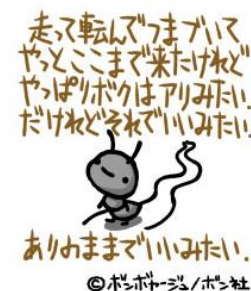 走って転んでつまづいて
やっとここまで来たけれど
やっぱりボクはアリみたい
だけれどそれでいいみたい
ありのままでいいみたい。
©ボンボヤージュ/ボン社